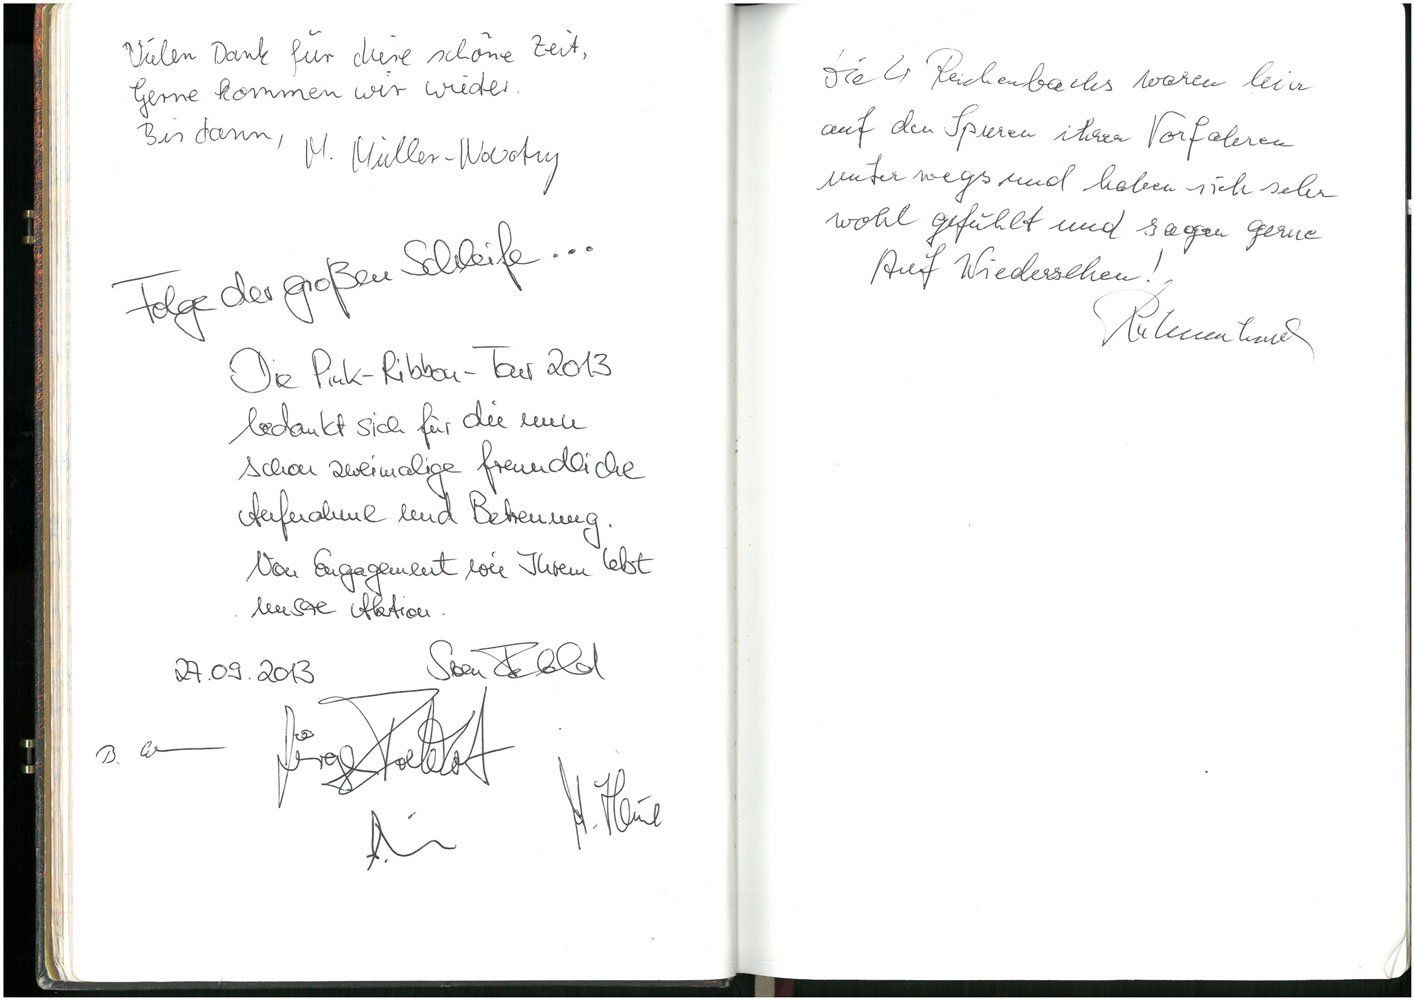 Vielen Dank für diese schöne Zeit,
Gerne kommen wir wieder.
Bis dann,
M. Müller-Novotny
Folge der großen Schleife...
Die Pink-Ribbon-Tour 2013
bedankt sich für die nun
schon zweimalige freundliche
Aufnahme und Betreuung.
Von Engagement wie Ihrem lebt
unsre Aktion.
27.09.2013
Sven
B.
Jörg
A.
H.
Die 4 Reichenbachs waren hier
auf den Spuren ihrer Vorfahren
unterwegs und haben sich sehr
wohl gefühlt und sagen gerne
Auf Wiedersehen!